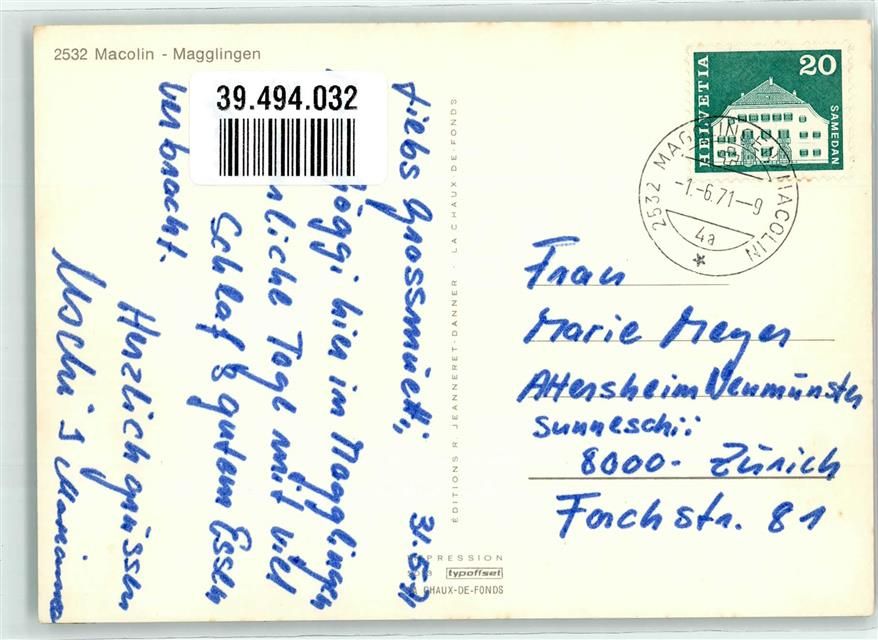 2532 Macolin - Magglingen
39.494.032
HELVETIA
20
SAMEDAN
2532 MAGGLINGEN MACOLIN
-1.-6.71-9
4a
ÉDITIONS R. JEANNERET-DANNER · LA CHAUX-DE-FONDS
IMPRESSION
typoffset
CHAUX-DE-FONDS
31.5.71
Liebs Grossmuetti,
hier in Magglingen
liche Tage mit viel
Schlaf & gutem Essen
verbracht.
Herzlich grüssen
Uschi & Marianne
Frau
Marie Meyer
Altersheim Neumünster
Sunneschii
8000- Zürich
Forchstr. 81